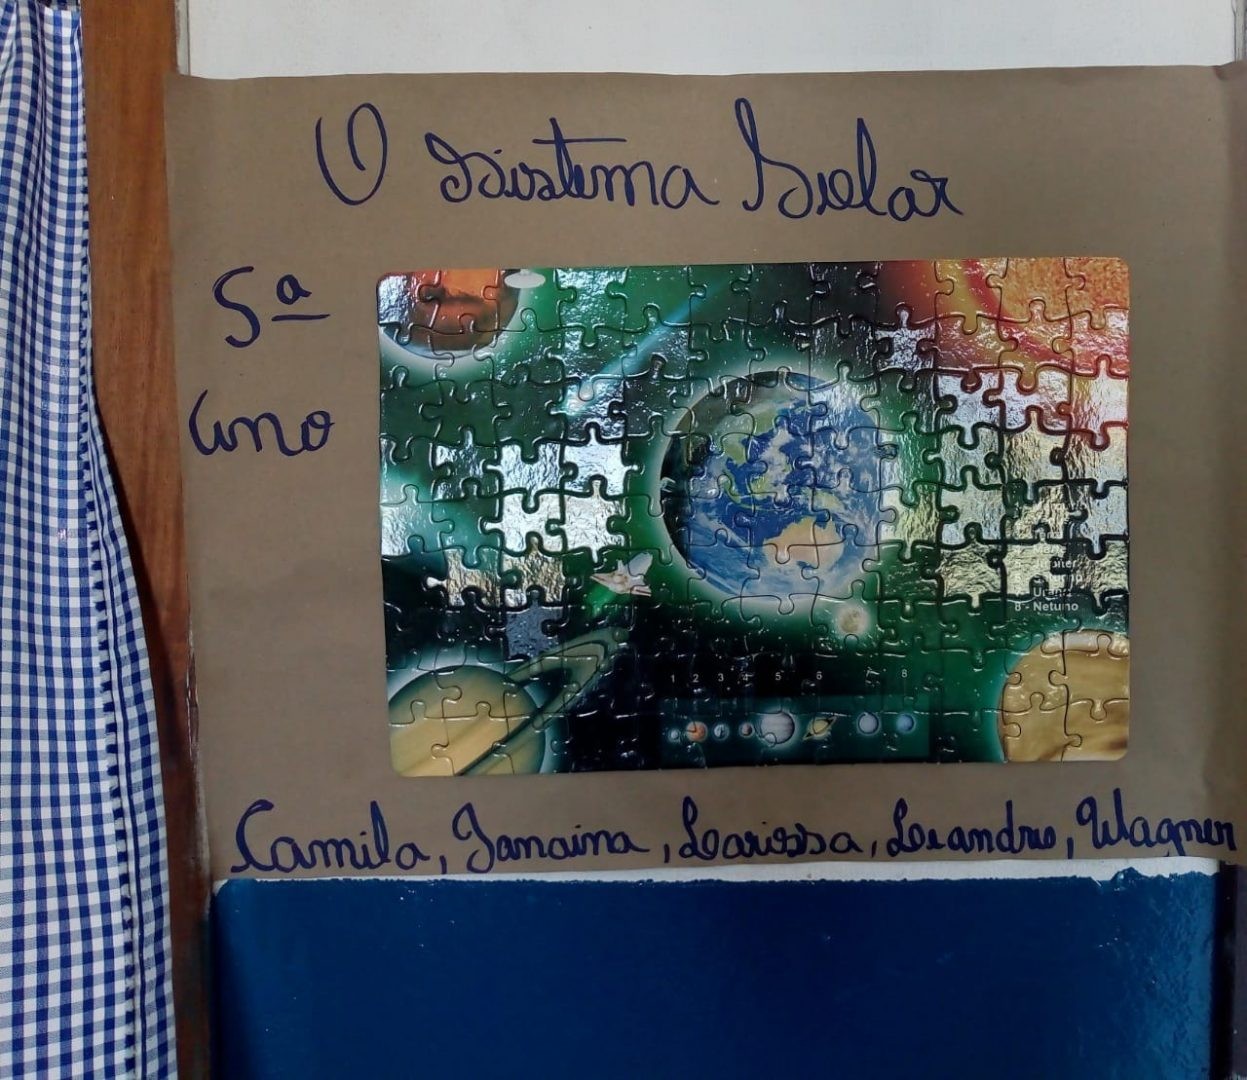 O Sistema Solar
5ª
ano
8 - Netuno
1 2 3 4 5 6 7 8
Camila, Janaina, Larissa, Leandro, Wagner